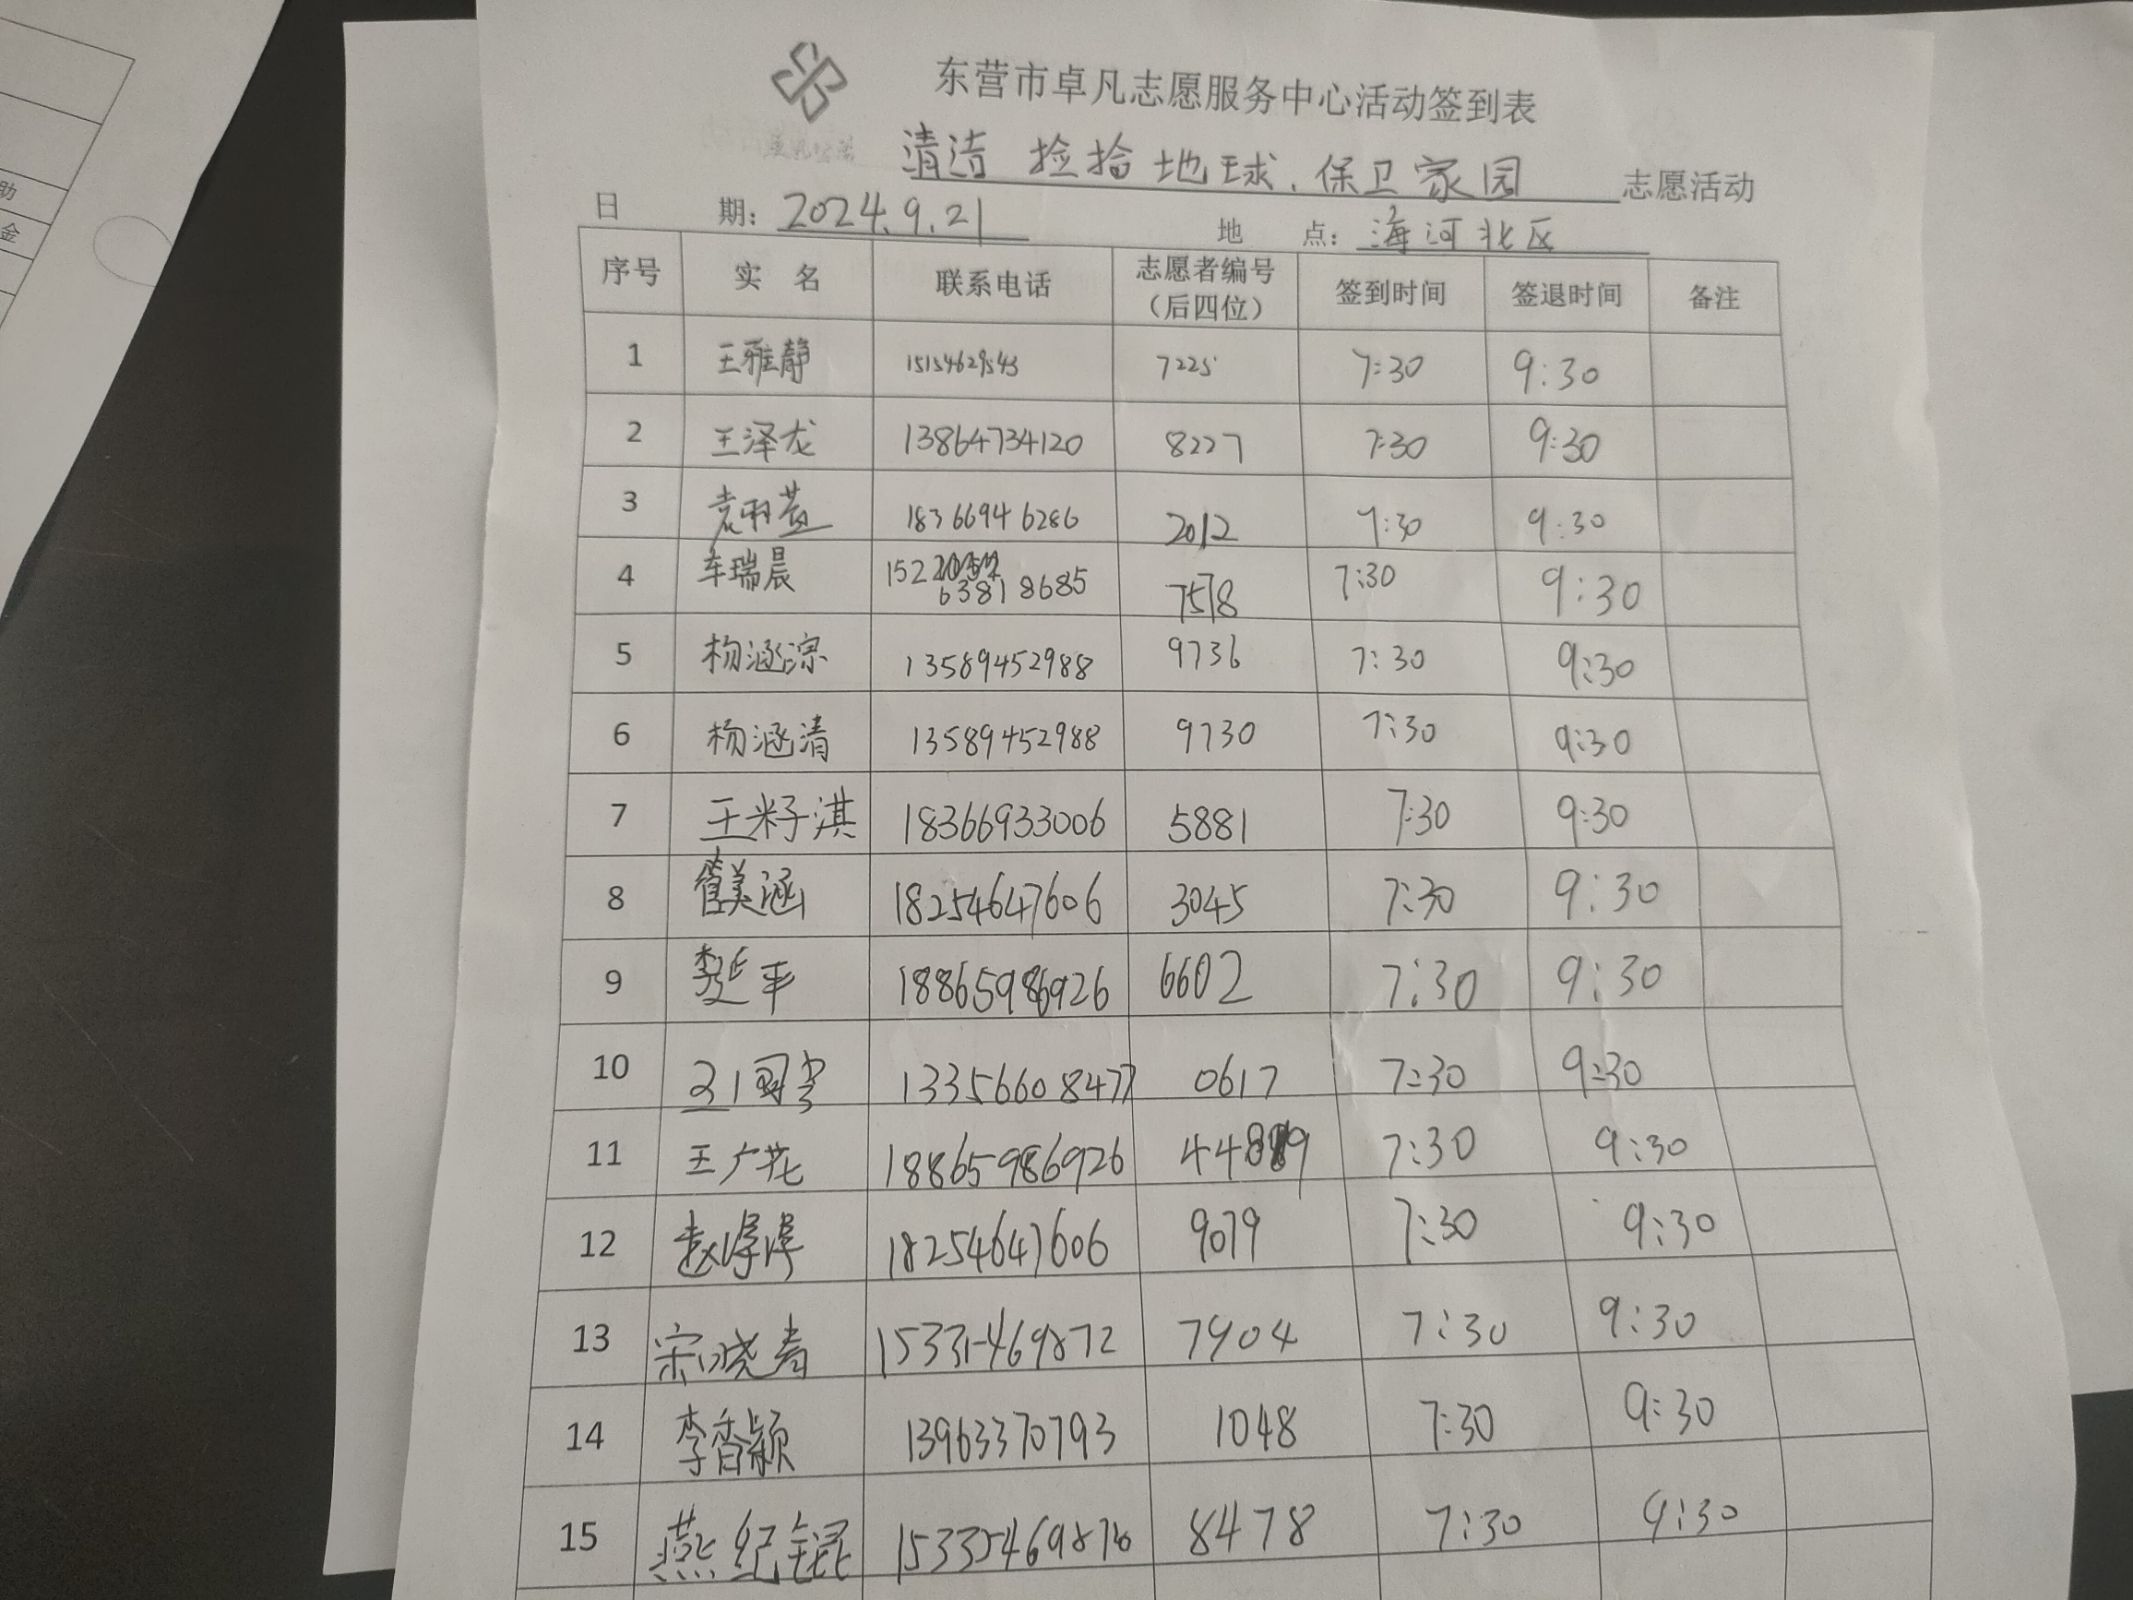 助
金
东营市卓凡志愿服务中心活动签到表
清洁 捡拾地球.保卫家园 志愿活动
日 期: 2024.9.21 地 点: 海河北区
序号 实 名 联系电话 志愿者编号（后四位） 签到时间 签退时间 备注
1 王雅静 15154629543 7225 7:30 9:30
2 王泽龙 13864734120 8227 7:30 9:30
3 袁雨萱 18366946286 2012 7:30 9:30
4 车瑞晨 152 63818685 7578 7:30 9:30
5 杨涵淙 13589452988 9736 7:30 9:30
6 杨涵清 13589452988 9730 7:30 9:30
7 王籽淇 18366933006 5881 7:30 9:30
8 管美涵 18254647606 3045 7:30 9:30
9 李延平 18865986926 6602 7:30 9:30
10 13356608477 0617 7:30 9:30
11 王广花 18865986926 7:30 9:30
12 18254647606 9079 7:30 9:30
13 宋晓春 7904 7:30 9:30
14 李香颖 13963370793 1048 7:30 9:30
15 燕纪锟 8478 7:30 9:30